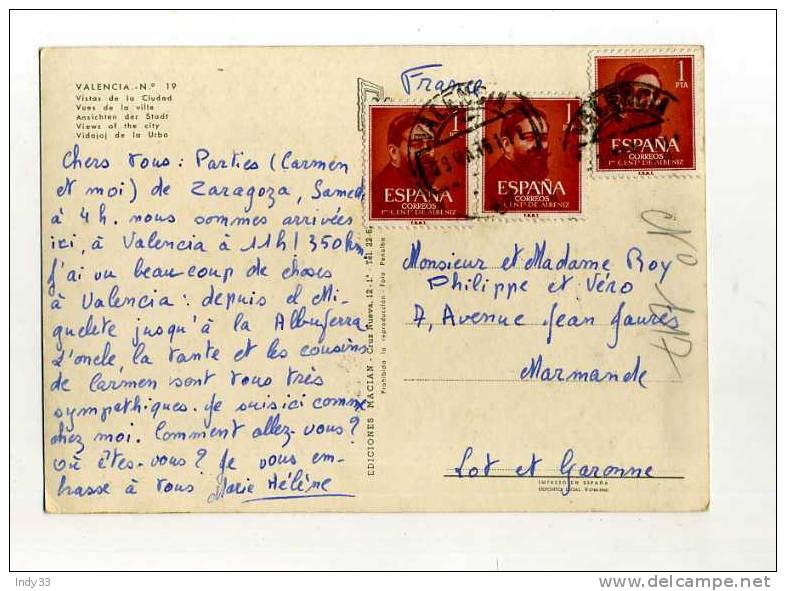 VALENCIA.-N.º 19
Vistas de la Ciudad
Vues de la ville
Ansichten der Stadt
Views of the city
Vidajoj de la Urbo
Chers tous : Parties (Carmen
et moi) de Zaragoza, Samedi
à 4h. nous sommes arrivées
ici, à Valencia à 11h! 350 km
J'ai vu beaucoup de choses
à Valencia : depuis el Mi-
guelete jusqu'à la Albuferra
L'oncle, la tante et les cousins
de Carmen sont tous très
sympathiques. Je suis ici comme
chez moi. Comment allez-vous?
Où êtes-vous? Je vous em-
brasse à tous Marie Hélène
EDICIONES MACIAN - Cruz Nueva, 12-1.º Tel. 22-6
Prohibida la reproducción - Foto Penalba
France
VALENCIA
1
PTA
ESPAÑA
CORREOS
1er CENTº DE ALBENIZ
F.N.M.T.
1
ESPAÑA
CORREOS
1er CENTº DE ALBENIZ
F.N.M.T.
VALENCIA
1
PTA
ESPAÑA
CORREOS
1er CENTº DE ALBENIZ
F.N.M.T.
Monsieur et Madame Roy
Philippe et Véro
7, Avenue Jean Jaurès
Marmande
Lot et Garonne
IMPRESO EN ESPAÑA
DEPOSITO LEGAL
Indy33
http://www.delcampe.net